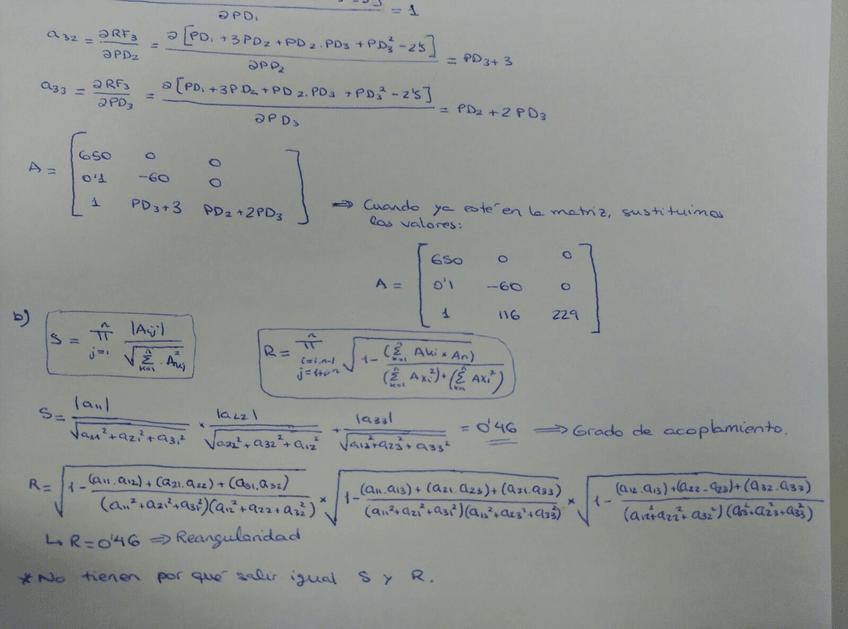 ∂PD₁ = 1
a₃₂ = ∂RF₃/∂PD₂ = ∂[PD₁ + 3PD₂ + PD₂.PD₃ + PD₃² - 25]/∂PD₂ = PD₃ + 3
a₃₃ = ∂RF₃/∂PD₃ = ∂[PD₁ + 3PD₂ + PD₂.PD₃ + PD₃² - 25]/∂PD₃ = PD₂ + 2PD₃
A = [650 0 0
0'1 -60 0
1 PD₃+3 PD₂+2PD₃]
⇒ Cuando ya esté en la matriz, sustituimos
los valores:
A = [650 0 0
0'1 -60 0
1 116 229]
b) S = ⁿπ_{j=i} |Aij|/√(Σⁿ_{k=1} . A²kj)
R = ⁿπ_{i=1,n-1 j=1+i,n} √(1 - (Σⁿ_{k=1} Aki × An)/((Σⁿ_{k=1} Axi²)+(Σⁿ_{k=1} Axi²)))
S = |a₁₁|/√(a₁₁² + a₂₁² + a₃₁²) × |a₂₂|/√(a₂₂² + a₃₂² + a₁₂²) + |a₃₃|/√(a₁₃² + a₂₃² + a₃₃²) = 0'46 ⇒ Grado de acoplamiento.
R = √(1 - ((a₁₁.a₁₂) + (a₂₁.a₂₂) + (a₃₁.a₃₂))/((a₁₁² + a₂₁² + a₃₁²)(a₁₂² + a₂₂ + a₃₂²))) × √(1 - ((a₁₁.a₁₃) + (a₂₁.a₂₃) + (a₃₁.a₃₃))/((a₁₁² + a₂₁² + a₃₁²)(a₁₃² + a₂₃² + a₃₃²))) × √(1 - ((a₁₂.a₁₃) + (a₂₂.a₂₃) + (a₃₂.a₃₃))/((a₁₂² + a₂₂² + a₃₂²)(a₁₃² + a₂₃² + a₃₃²)))
↳ R = 0'46 ⇒ Reangularidad
* No tienen por qué salir igual S y R.